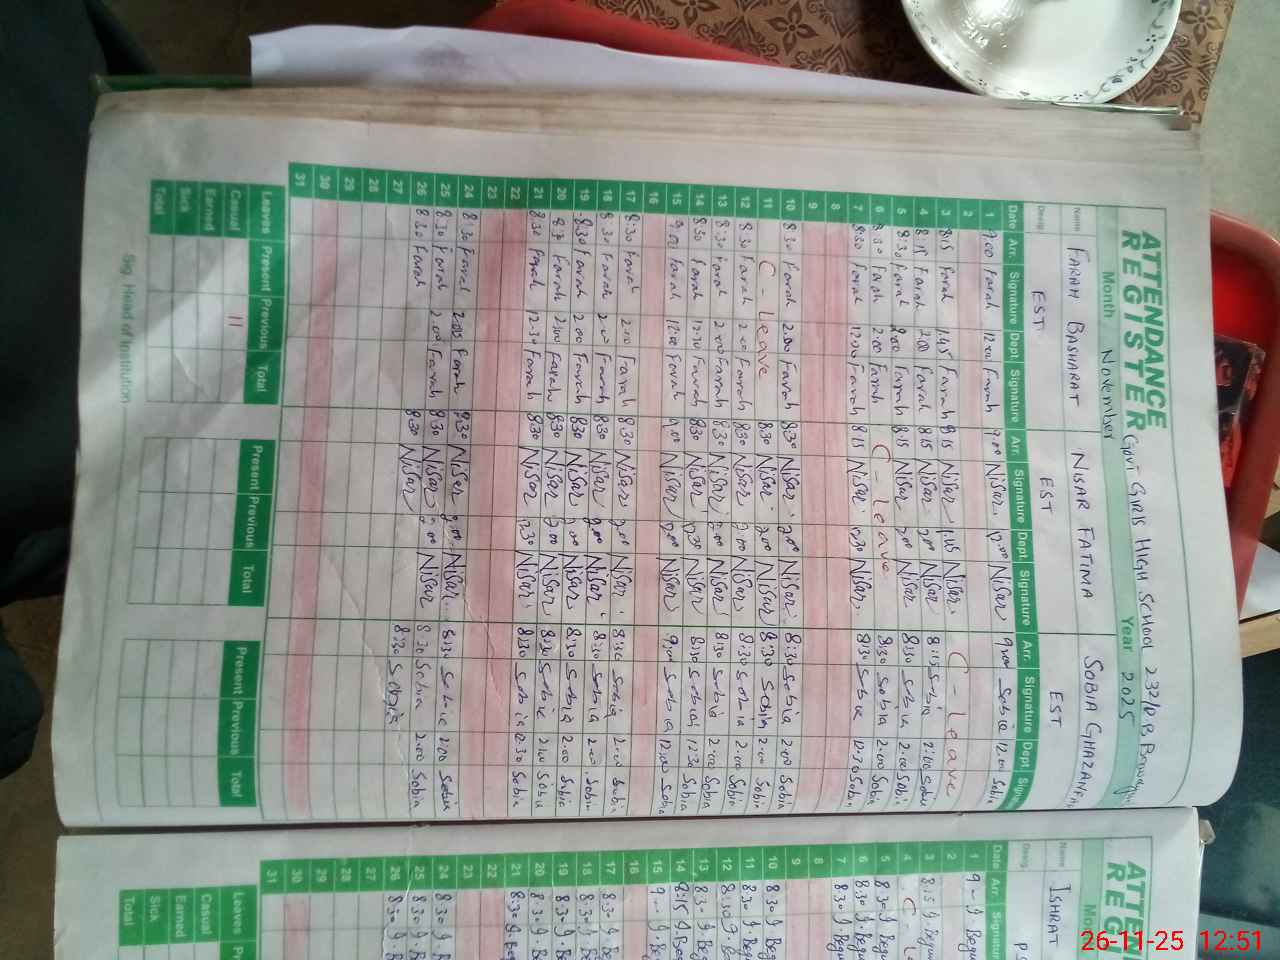 ATTENDANCE REGISTER
Govt Girls High School 237/RB
Month November Year 2025
Name FARAH BASHARAT NISAR FATIMA SOBIA GHAZANFAR
Desig EST EST EST
Date Arr. Signature Dept. Signature Arr. Signature Dept. Signature Arr. Signature Dept. Signature
1 9:00 Farah 12:00 Farah 9:00 Nisar 12:00 Nisar 9:00 Sobia 12:00 Sobia
2
3 8:15 Farah 1:45 Farah 8:15 Nisar 1:45 Nisar C - Leave
4 8:15 Farah 2:00 Farah 8:15 Nisar 2:00 Nisar 8:15 Sobia 2:00 Sobia
5 8:30 Farah 2:00 Farah 8:15 Nisar 2:00 Nisar 8:30 Sobia 2:00 Sobia
6 8:30 Farah 2:00 Farah C - Leave 8:30 Sobia 2:00 Sobia
7 8:30 Farah 12:30 Farah 8:15 Nisar 12:30 Nisar 8:30 Sobia 12:30 Sobia
8
9
10 8:30 Farah 2:00 Farah 8:30 Nisar 2:00 Nisar 8:30 Sobia 2:00 Sobia
11 C - Leave 8:30 Nisar 2:00 Nisar 8:30 Sobia 2:00 Sobia
12 8:30 Farah 2:00 Farah 8:30 Nisar 2:00 Nisar 8:30 Sobia 2:00 Sobia
13 8:30 Farah 2:00 Farah 8:30 Nisar 2:00 Nisar 8:30 Sobia 2:00 Sobia
14 8:30 Farah 12:30 Farah 8:30 Nisar 12:30 Nisar 8:30 Sobia 12:30 Sobia
15 9:00 Farah 12:00 Farah 9:00 Nisar 12:00 Nisar 9:00 Sobia 12:00 Sobia
16
17 8:30 Farah 2:00 Farah 8:30 Nisar 2:00 Nisar 8:30 Sobia 2:00 Sobia
18 8:30 Farah 2:00 Farah 8:30 Nisar 2:00 Nisar 8:30 Sobia 2:00 Sobia
19 8:30 Farah 2:00 Farah 8:30 Nisar 2:00 Nisar 8:30 Sobia 2:00 Sobia
20 8:30 Farah 2:00 Farah 8:30 Nisar 2:00 Nisar 8:30 Sobia 2:00 Sobia
21 8:30 Farah 12:30 Farah 8:30 Nisar 12:30 Nisar 8:30 Sobia 12:30 Sobia
22
23
24 8:30 Farah 2:00 Farah 8:30 Nisar 2:00 Nisar
25 8:30 Farah 2:00 Farah 8:30 Nisar 2:00 Nisar 8:30 Sobia 2:00 Sobia
26 8:30 Farah 8:30 Nisar 8:30 Sobia 2:00 Sobia
27 8:30 Sobia
28
29
30
31
Leaves Present Previous Total Present Previous Total Present Previous Total
Casual 11
Earned
Sick
Total
Sig. Head of Institution
ATTEN
REG
Name ISHRAT
Desig
Date Arr. Signature
1 9
2
3 8:15
4 C
5 8:30
6 8:30
7 8:30
8
9
10 8:30
11 8:30
12 8:30
13 8:30
14 8:15
15 9
16
17 8:30
18 8:30
19 8:30
20 8:30
21 8:30
22
23
24 8:30
25 8:30
26 8:30
27
28
29
30
31
Leaves
Casual
Earned
Sick
Total
26-11-25 12:51